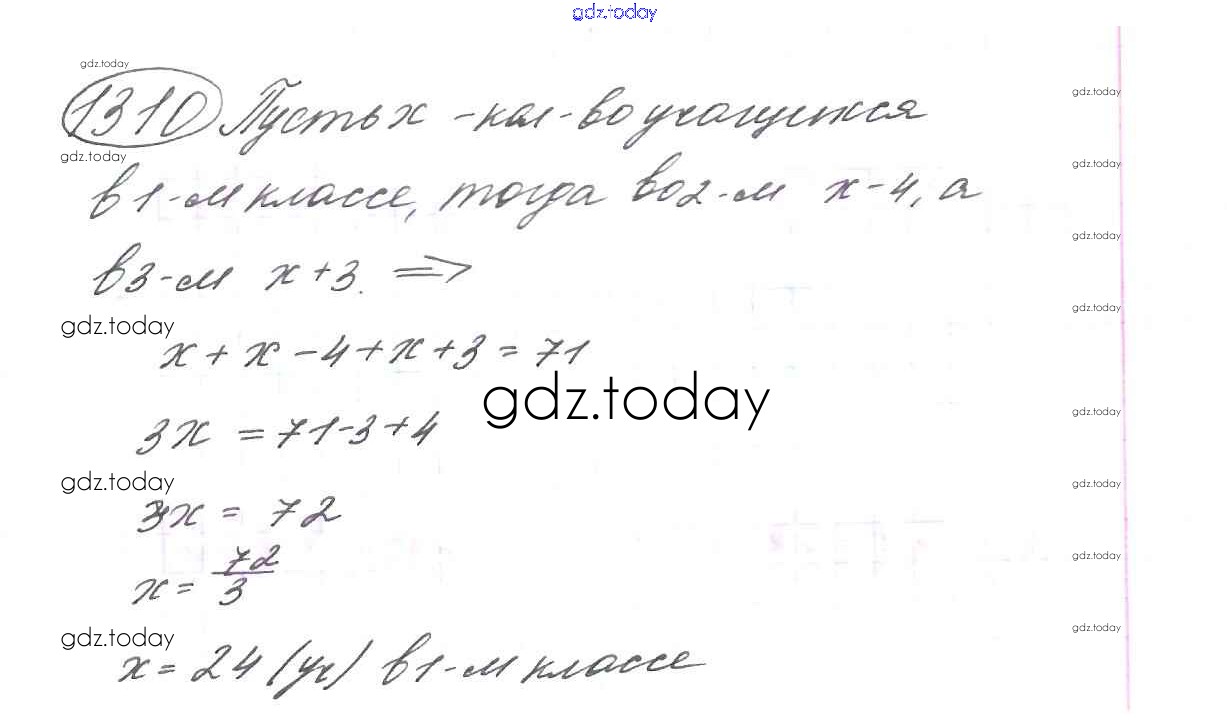 gdz.today
gdz.today
1310 Пусть x - кол-во учащихся
gdz.today
gdz.today
gdz.today
в 1-м классе, тогда во 2-м x-4, а
gdz.today
в 3-м x+3. =>
gdz.today
gdz.today
x + x - 4 + x + 3 = 71
gdz.today
gdz.today
3x = 71-3+4
gdz.today
gdz.today
3x = 72
gdz.today
x = 72/3
gdz.today
gdz.today
x = 24 (уч) в 1-м классе